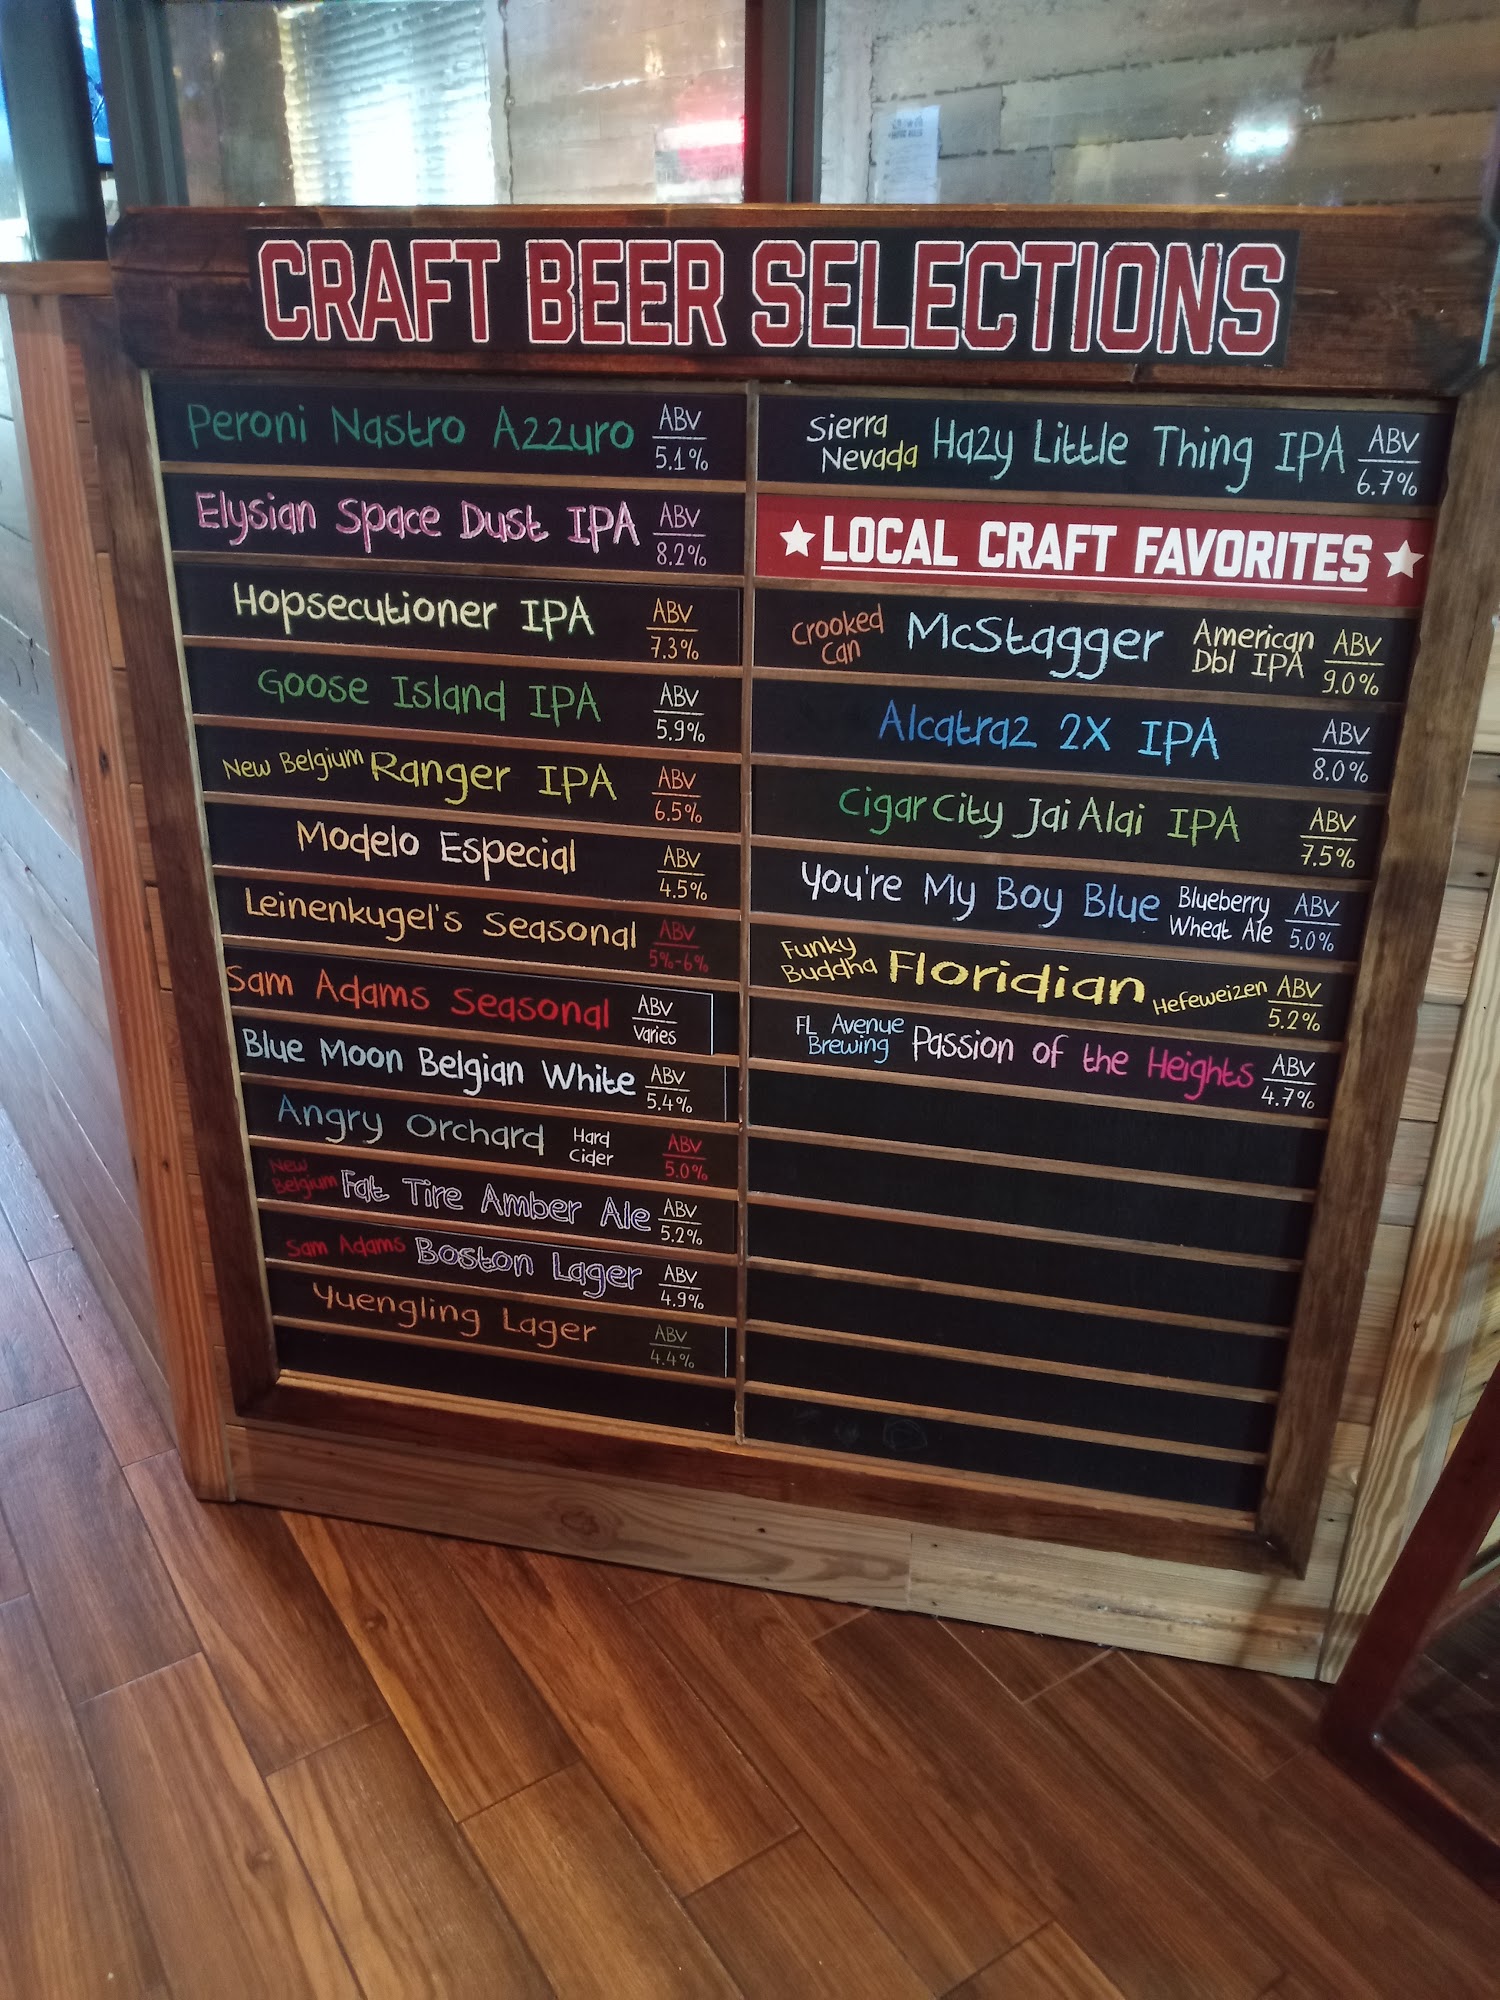 CRAFT BEER SELECTIONS
Peroni Nastro Azzuro ABV 5.1%
Elysian Space Dust IPA ABV 8.2%
Hopsecutioner IPA ABV 7.3%
Goose Island IPA ABV 5.9%
New Belgium Ranger IPA ABV 6.5%
Modelo Especial ABV 4.5%
Leinenkugel's Seasonal ABV 5%-6%
Sam Adams Seasonal ABV varies
Blue Moon Belgian White ABV 5.4%
Angry Orchard Hard Cider ABV 5.0%
New Belgium Fat Tire Amber Ale ABV 5.2%
Sam Adams Boston Lager ABV 4.9%
Yuengling Lager ABV 4.4%
Sierra Nevada Hazy Little Thing IPA ABV 6.7%
LOCAL CRAFT FAVORITES
Crooked Can McStagger American Dbl IPA ABV 9.0%
Alcatraz 2X IPA ABV 8.0%
Cigar City Jai Alai IPA ABV 7.5%
You're My Boy Blue Blueberry Wheat Ale ABV 5.0%
Funky Buddha Floridian Hefeweizen ABV 5.2%
FL Avenue Brewing Passion of the Heights ABV 4.7%